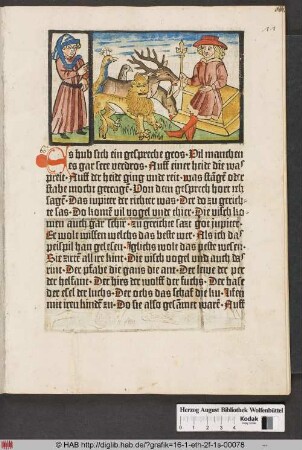 Es hub sich ein gespreche gros · Vil manchen
es gar seer verdros · Auff einer heide die was
preit · Auff der heide ging vnde reit · was
stabe mocht getrage · Von dem gesprech hort ich
sage · Das iupiter der richter was · Der do zu gerich-
te sas · Do kome vil vogel vnde thier · Die visch ko-
men auch gar schir · zu gerichte saz got iupiter ·
Er wolt wissen welchs das peste wer · Als ich das
peispil han gelesen · Iglichs wolt das peste wesen ·
Sie zirte all ire kint · Die visch vogel vnd auch da
rint · Der pfabe die gans die ant · Der lewe der per
der helfant · Der hirs der wolff der fuchs · Der hase
der esel der luchs · Der ochs das schaf die ku ·
mit iren kinde zu · Do sie also gesamet ware · Auff
Herzog August Bibliothek Wolfenbüttel
Kodak
© HAB http://diglib.hab.de/?grafik=16-1-eth-2f-1s-00078